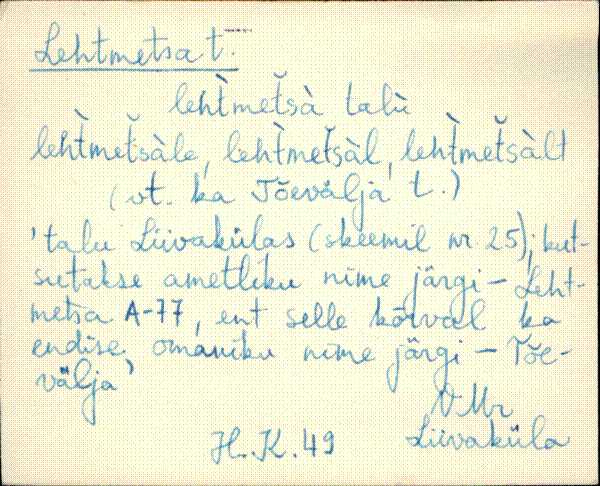 Lehtmetsa t.
leht̀metšà talù
leht̀metšàle, leht̀metšàl, leht̀metšàlt
(vt. ka Tõevälja t.)
'talu Liivakülas (skeemil nr 25); kut-
sutakse ametliku nime järgi – Leht-
metsa A-77, ent selle kõrval ka
endise omaniku nime järgi – Tõe-
välja'
V Mr
H. K. 49 Liivaküla